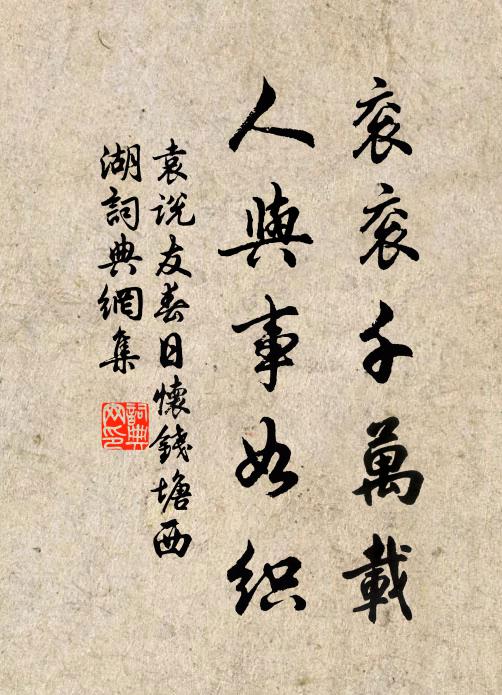 衮衮千萬載
人與事如织
袁说友春日懷錢塘西
湖詞典網集
詞典
网印